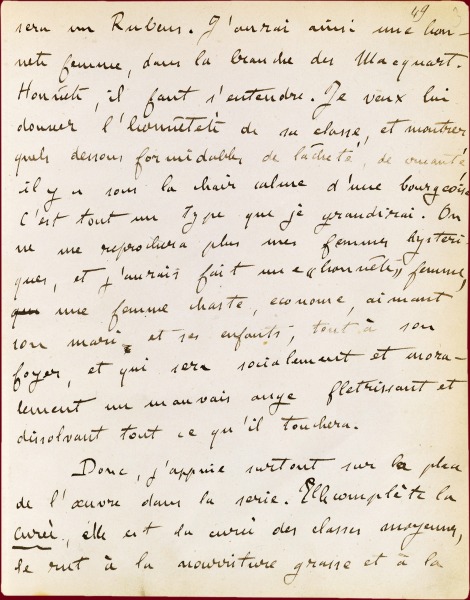 49
sera un Rubens. J'aurai ainsi une hon-
nete femme, dans la branche des Macquart.
Honnête, il faut s'entendre. Je veux lui
donner l'honnêteté de sa classe, et montrer
quels dessous formidables de lâcheté, de cruauté,
il y a sous la chair calme d'une bourgeoise
C'est tout un type que je grandirai. On
ne me reprochera plus mes femmes hysteri-
ques, et j'aurais fait une «honnête» femme,
une femme chaste, econome, aimant
son mari et ses enfants, tout à son
foyer, et qui sera socialement et mora-
lement un mauvais ange fletrissant et
dissolvant tout ce qu'il touchera.
Donc, j'appuie surtout sur la place
de l'œuvre dans la serie. Elle complète la
Curée, elle est la curée des classes moyennes,
le rut à la nourriture grasse et à la